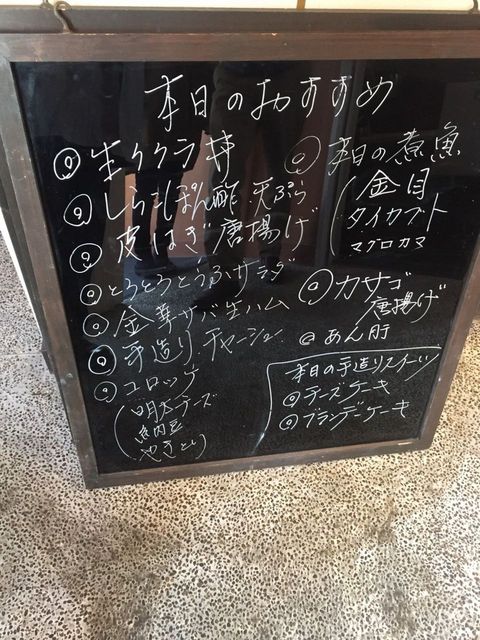 本日のおすすめ
生クラ丼
しらこぽん酢.天ぷら
皮はぎ唐揚げ
とろとろとうふサラダ
金華サバ生ハム
手造りチャーシュー
コロッケ
明太チーズ
納豆
やきとり
本日の煮魚
金目
タイカブト
マグロカマ
カサゴ
唐揚げ
あん肝
本日の手造りスイーツ
チーズケーキ
ブランデケーキ